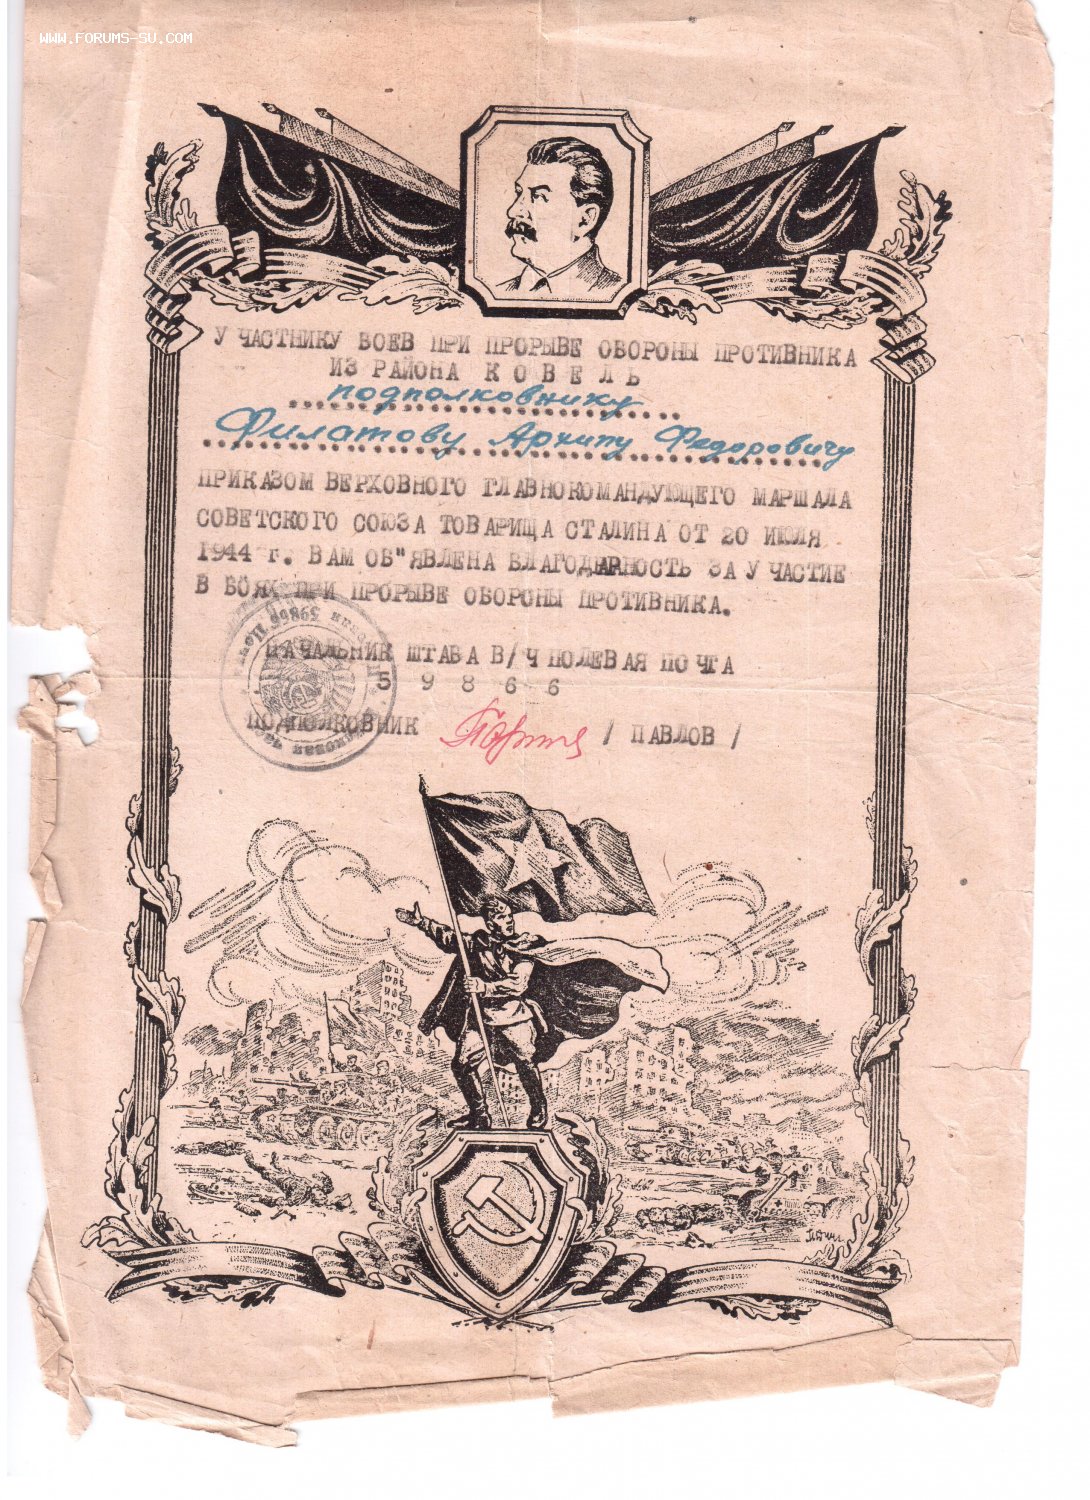 WWW.FORUMS-SU.COM
У ЧАСТНИКУ БОЕВ ПРИ ПРОРЫВЕ ОБОРОНЫ ПРОТИВНИКА
ИЗ РАЙОНА К О В Е Л Ь
подполковнику
Филатову Архипу Федоровичу
ПРИКАЗОМ ВЕРХОВНОГО ГЛАВНОКОМАНДУЮЩЕГО МАРШАЛА
СОВЕТСКОГО СОЮЗА ТОВАРИЩА СТАЛИНА ОТ 20 ИЮЛЯ
1944 г. ВАМ ОБ"ЯВЛЕНА БЛАГОДАРНОСТЬ ЗА УЧАСТИЕ
В БОЯХ ПРИ ПРОРЫВЕ ОБОРОНЫ ПРОТИВНИКА.
НАЧАЛЬНИК ШТАБА В/Ч ПОЛЕВАЯ ПОЧТА
5 9 8 6 6
ПОДПОЛКОВНИК / ПАВЛОВ /
59866